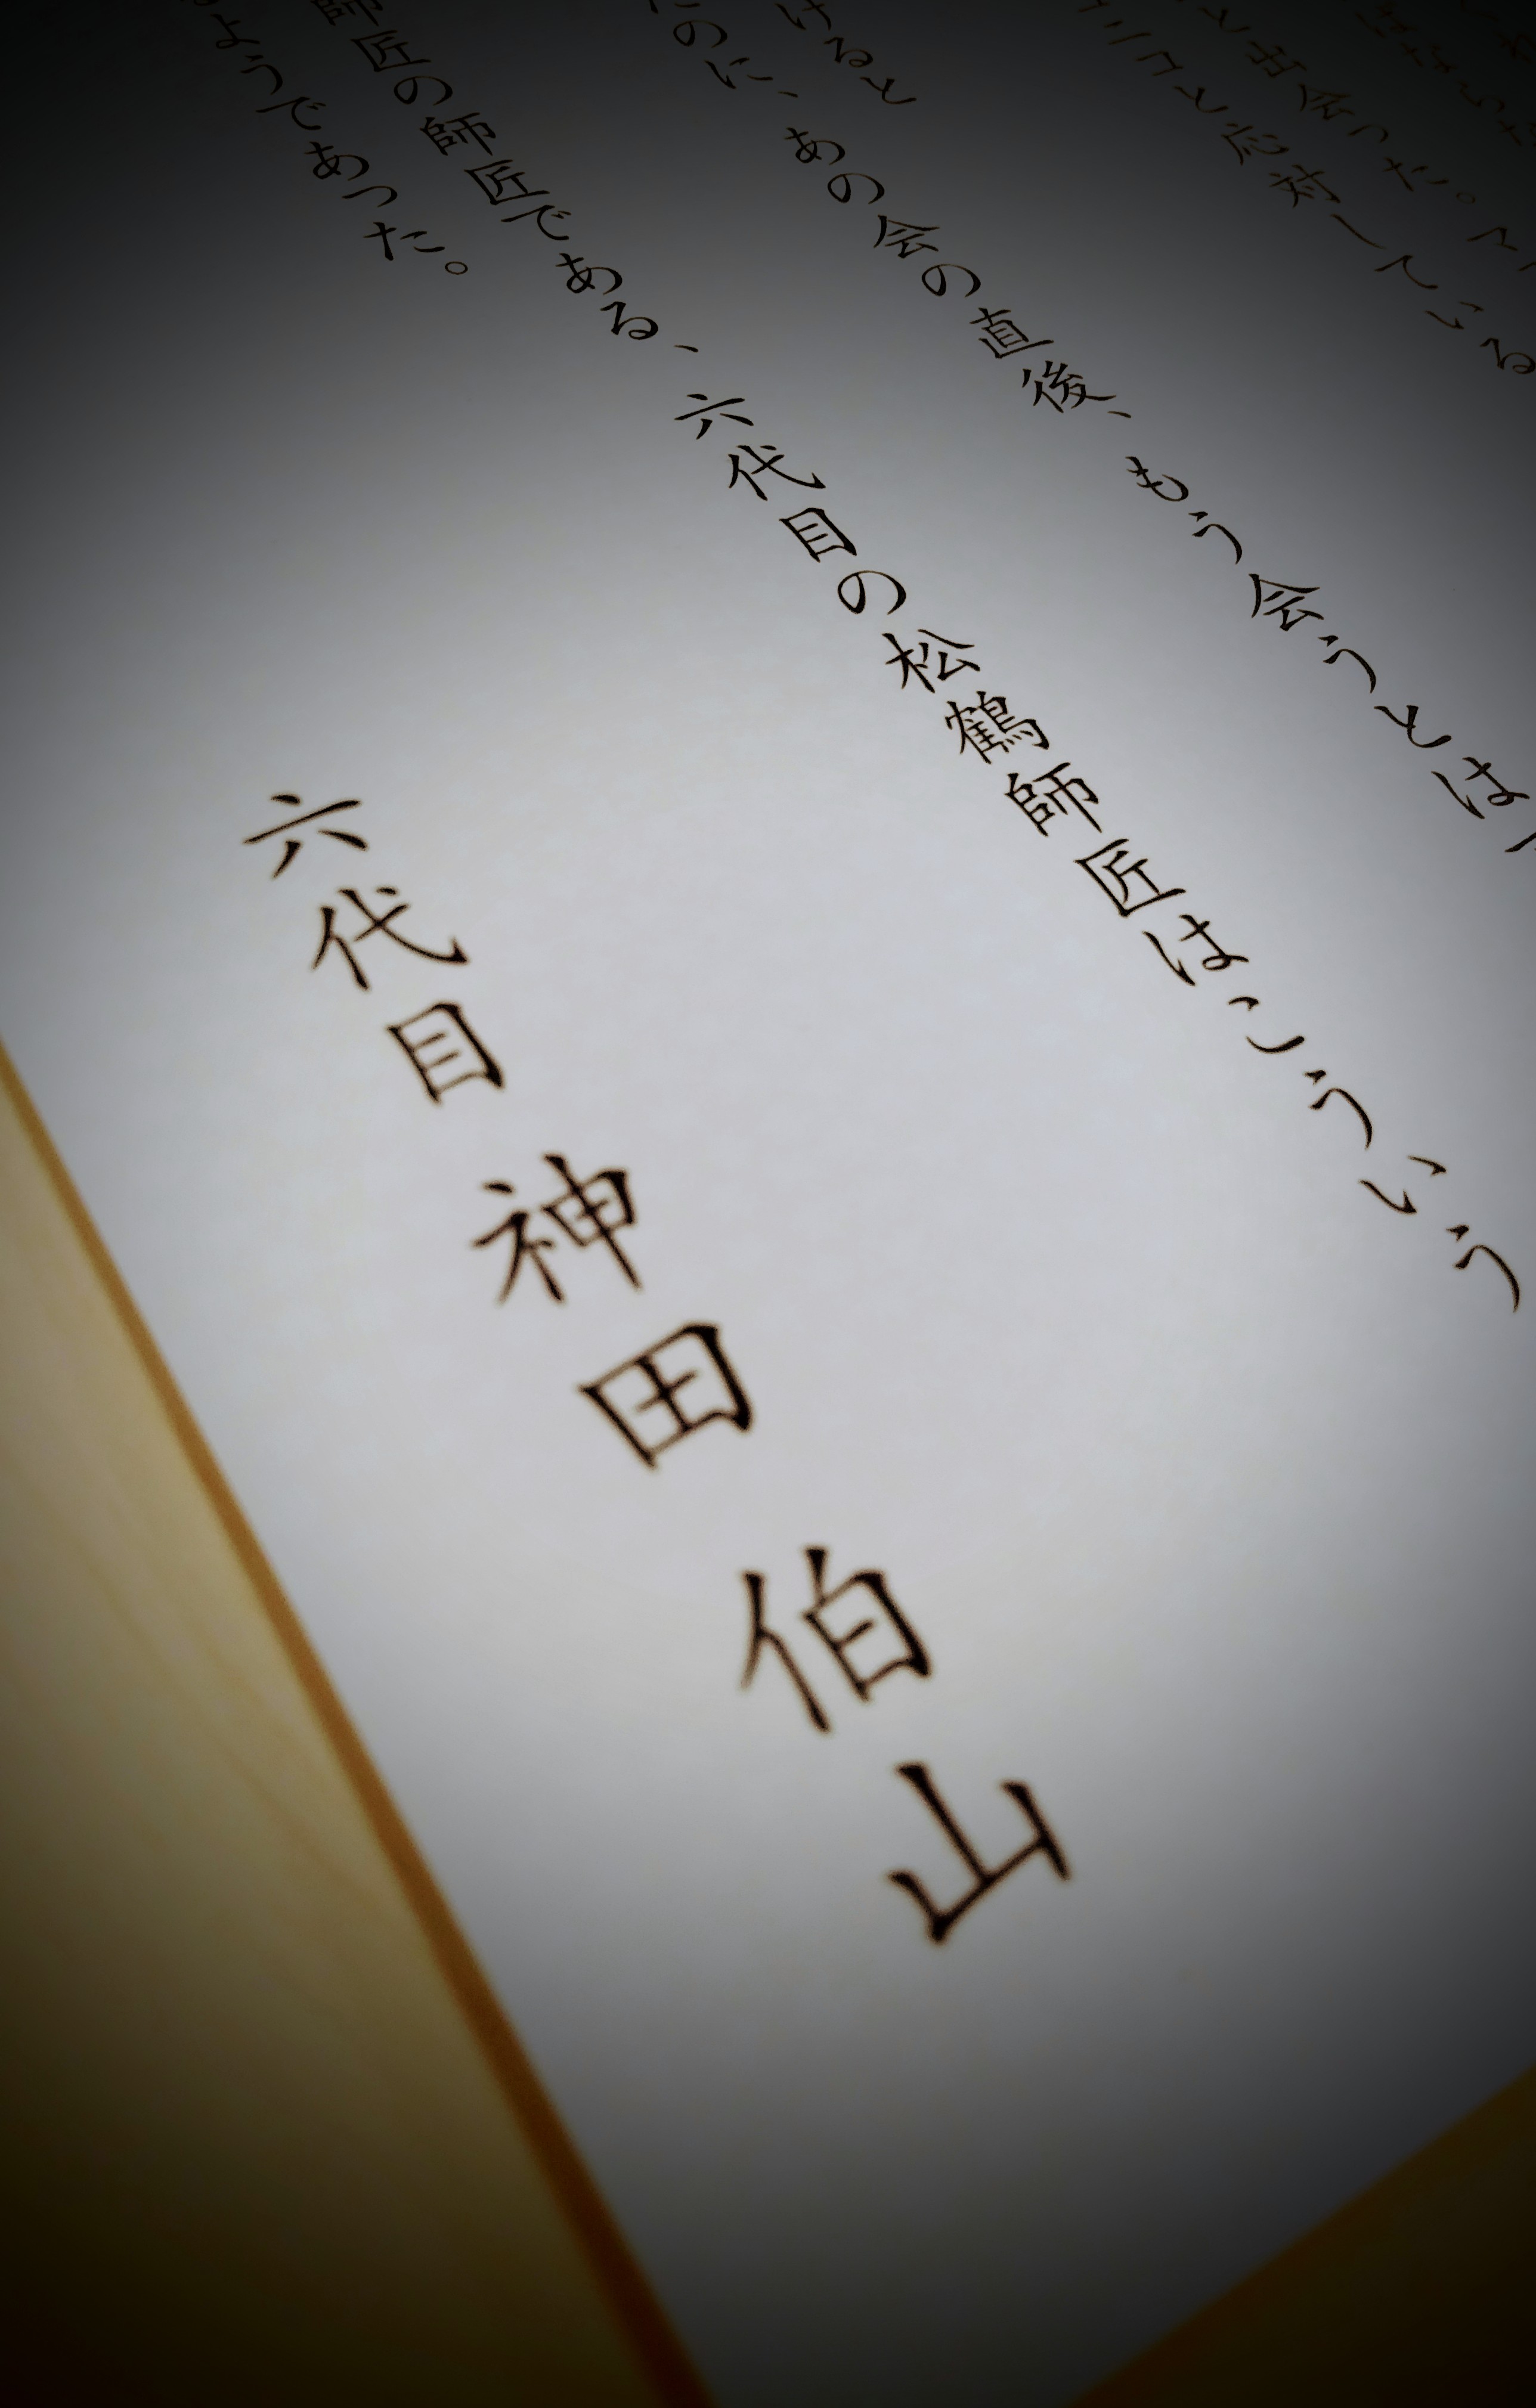 と出会った。マ
ニコと応対している
けると
のに、あの会の直後、もう会うとは
師匠の師匠である、六代目の松鶴師匠はこういう
ようであった。
六代目 神田 伯山